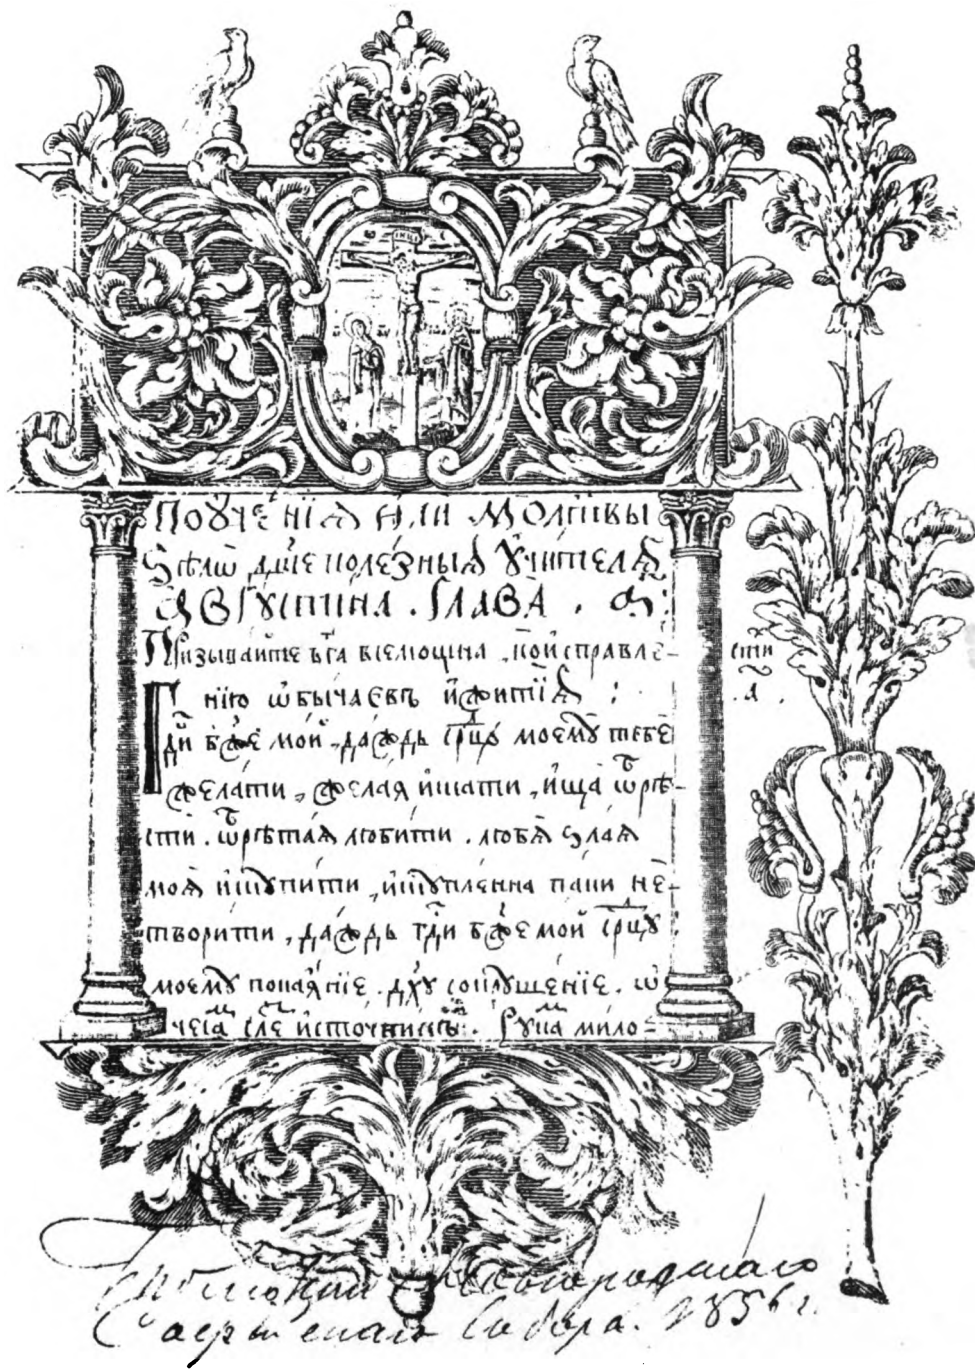 Поꙋче́нїѧ и҆ли Моли́твы
Ѕѣлѡ̀ дш҃еполе́зныѧ ᲂу҆чи́телѧ
Аѵгꙋсті́на . Глава̀ . а҃ :
Призыва́йте бг҃а всемощна , кои҆справле́-
нїю ѡ҆бы́чаєвъ и҆житїѧ̀ :
Гдⷭ҇и бж҃е мо́й , да́ждь срⷣцꙋ моемꙋ̀ тебѐ
жела́ти , жела́ѧ и҆ска́ти , и҆ща̀ ѡ҆брѣ-
сти . ѡ҆брѣта́ѧ люби́ти . любѧ̀ ѕла́ѧ
моѧ̀ и҆скꙋпи́ти , и҆скꙋпле́нна паки не-
твори́ти , да́ждь гдⷭ҇и бж҃е мой срⷣцꙋ
моемꙋ̀ покаѧ́нїе . дх҃ꙋ сокрꙋше́нїе . ѻ-
че́са сле́м и҆сто́чникъ . рꙋка́м мило-
сти
. а .
Новгородскаго
Софійскаго Собора. 1856 г.